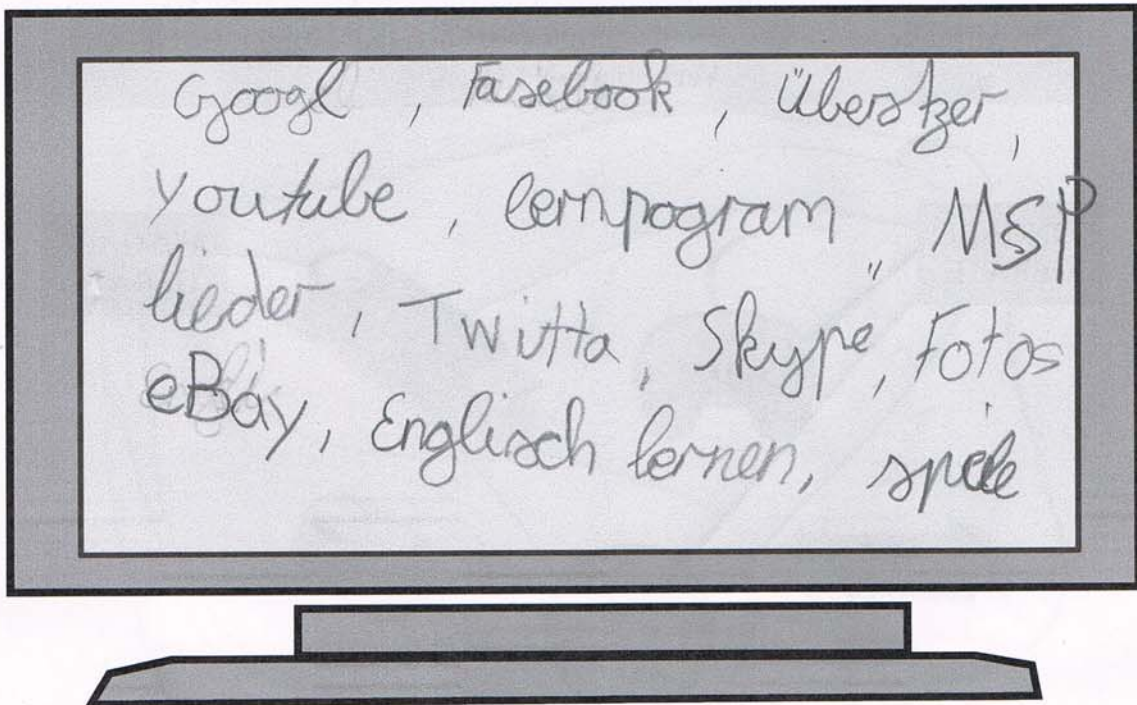 Googl, Fasebook, Überstzer,
youtube, lernpogram, MSP
lieder, Twitta, Skype, Fotos
eBay, Englisch lernen, spiele